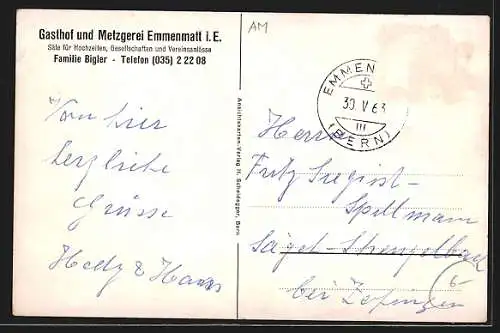 Gasthof und Metzgerei Emmenmatt i. E.
Säle für Hochzeiten, Gesellschaften und Vereinsanlässe
Familie Bigler - Telefon (035) 2 22 08
AM
EMMEN
30. V 63
III
(BERN)
Von hier
herzliche
Grüsse
Hedy & Hans
Ansichtskarten-Verlag H. Scheidegger, Bern
Herrn
Fritz Siegrist-
Spillmann
Säget-Strengelbach
bei Zofingen
6-